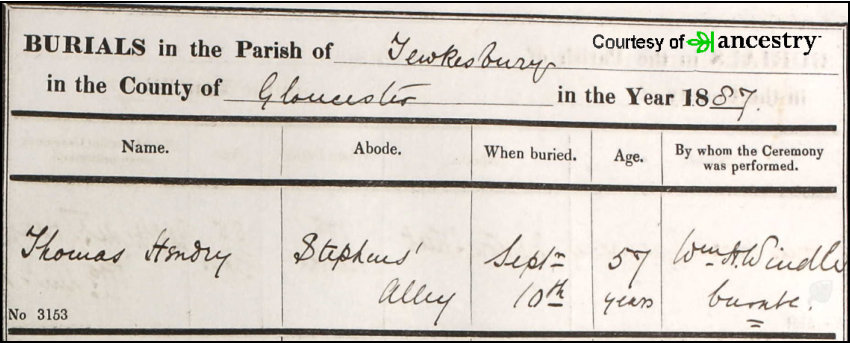 BURIALS in the Parish of Tewkesbury
Courtesy of ancestry
in the County of Gloucester in the Year 1887.
Name. Abode. When buried. Age. By whom the Ceremony was performed.
Thomas Hendry Stephens' Sept^r 57 Wm. H. Windle
Alley 10th years curate.
No 3153